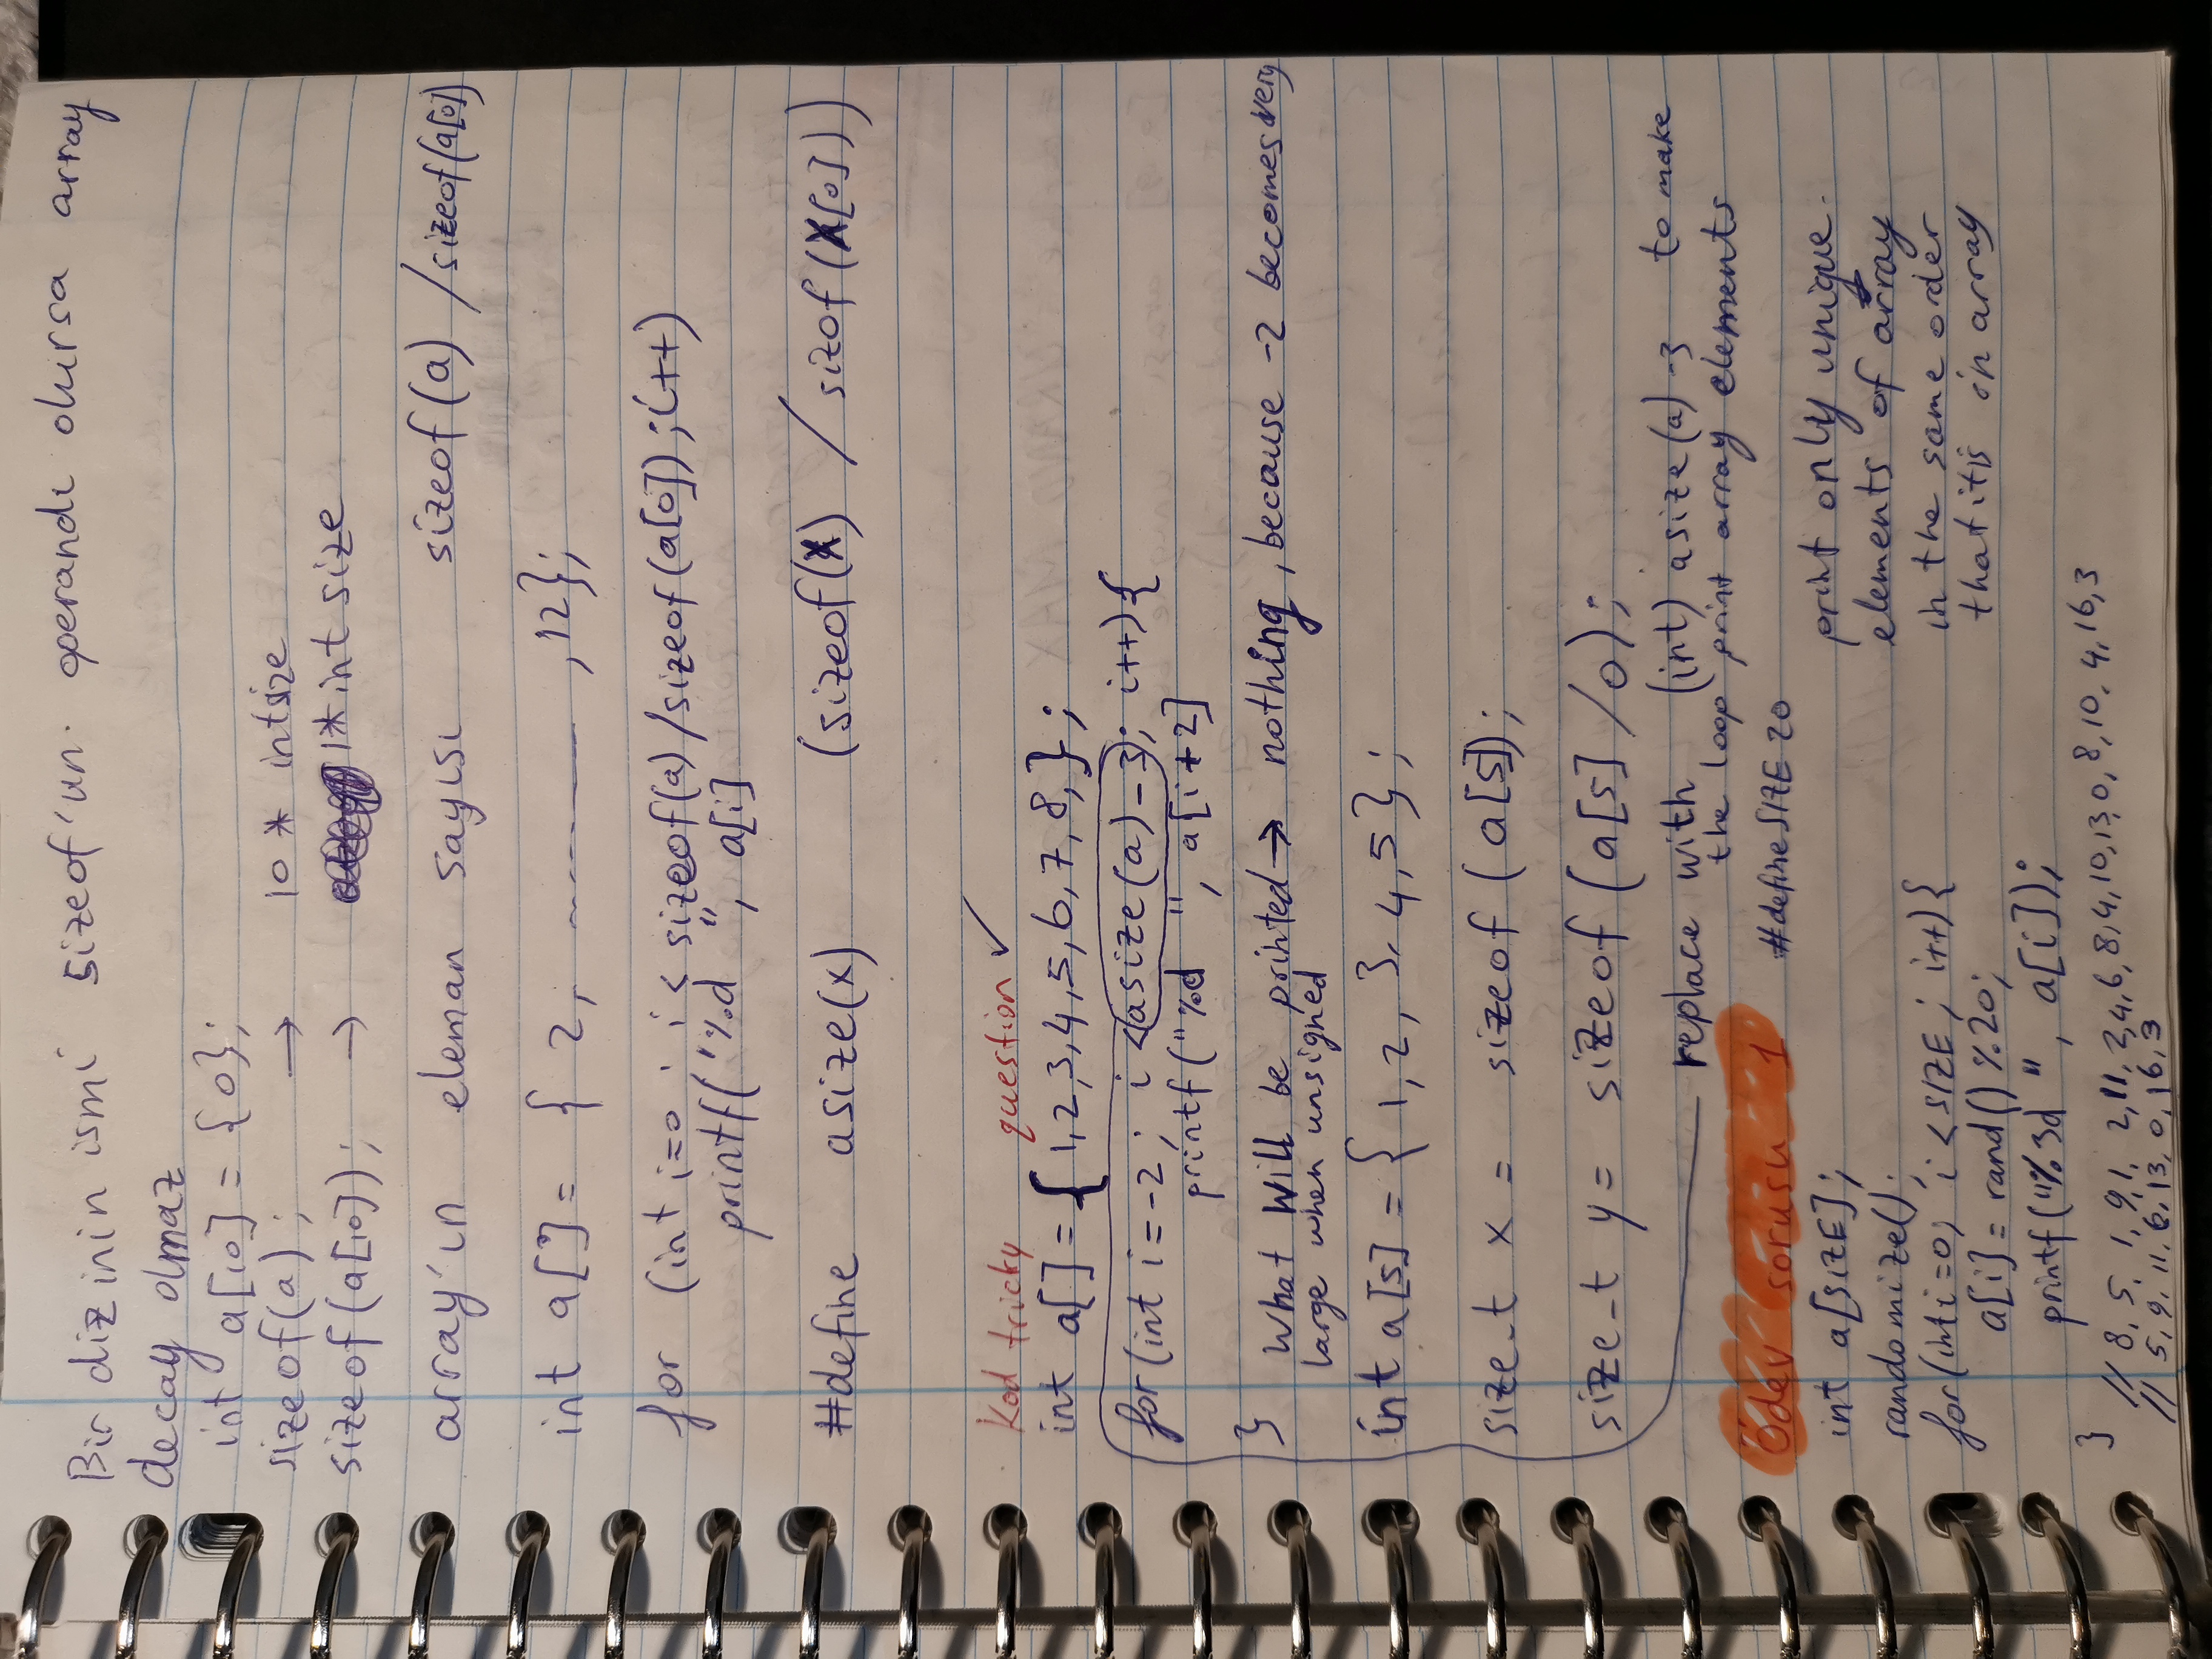 Bir dizinin ismi sizeof'un operandı olursa array
decay olmaz
int a[10] = {0};
sizeof(a); → 10 * intsize
sizeof(a[10]); → 1* int size
array'ın eleman sayısı sizeof(a) /sizeof(a[0])
int a[] = { 2, ,12};
for (int i=0 ; i < sizeof(a)/sizeof(a[0]);i++)
printf("%d ", a[i]
#define asize(x) (sizeof(X) / sizof (X[0]))
Kod tricky question ✓
int a[] = { 1,2,3,4,5,6,7,8,};
for(int i=-2; i <asize(a)-3; i++){
printf("%d ", a[i+2]
}
What will be printed → nothing, because -2 becomes very
large when unsigned
int a[5] = { 1,2, 3, 4,5};
size_t x = sizeof (a[5]);
size_t y = sizeof (a[5] /0);
replace with (int) asize(a)-3 to make
the loop print array elements
Ödev sorusu 1 #define SIZE 20
int a[SIZE]; print only unique
randomize(); elements of array
for(int i=0; i <SIZE; i++){ in the same order
a[i] = rand() %20; that it is in array
printf("%3d ", a[i]);
}
// 8, 5, 1, 9,1, 2,11, 2,4,6,8,4,10,13,0,8,10, 4,16,3
// 5,9, 11, 6,13, 0, 16,3